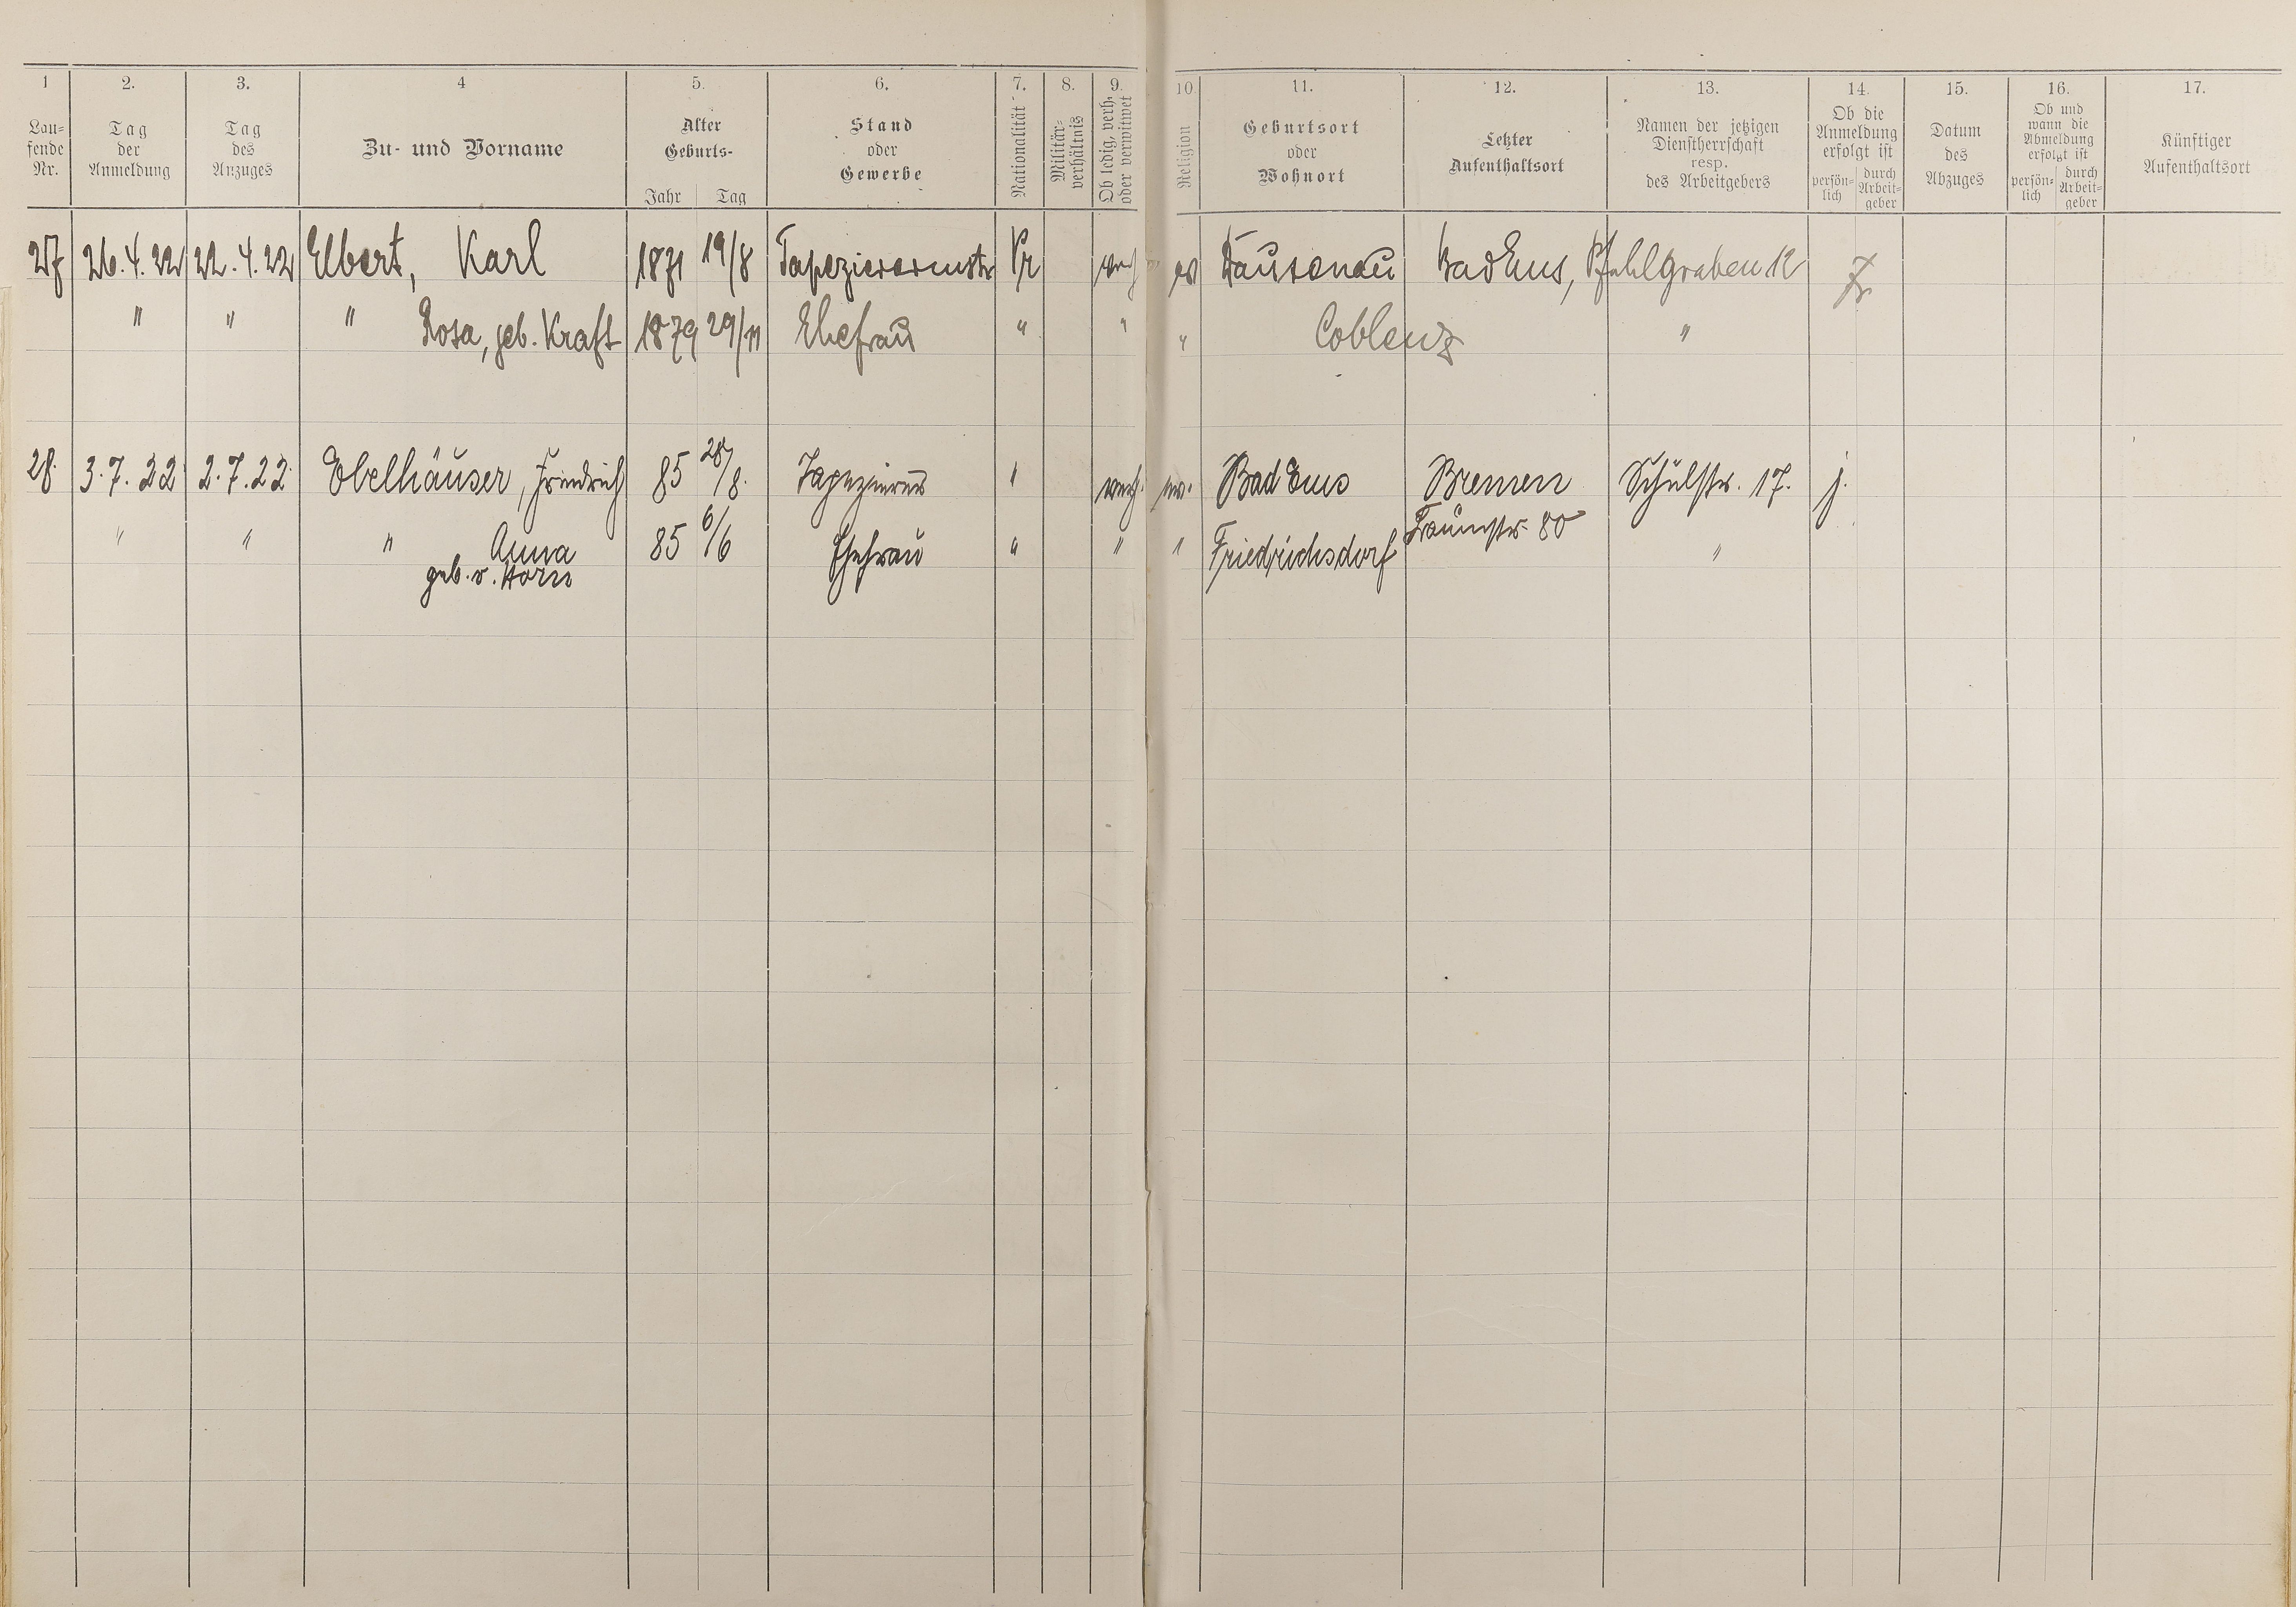 1 2. 3. 4 5. 6. 7. 8. 9. 10. 11. 12. 13. 14. 15. 16. 17.
Lau-
fende
Nr.
Tag
der
Anmeldung
Tag
des
Anzuges
Zu- und Vorname
Alter
Geburts-
Jahr Tag
Stand
oder
Gewerbe
Nationalität
Militär-
verhältnis
Ob ledig, verh.
oder verwitwet
Religion
Geburtsort
oder
Wohnort
Letzter
Aufenthaltsort
Namen der jetzigen
Dienstherrschaft
resp.
des Arbeitgebers
Ob die
Anmeldung
erfolgt ist
persön-
lich
durch
Arbeit-
geber
Datum
des
Abzuges
Ob und
wann die
Abmeldung
erfolgt ist
persön-
lich
durch
Arbeit-
geber
Künftiger
Aufenthaltsort
27 26.4.22 22.4.22 Elbert, Karl 1871 19/8 Tapezierermstr Pr verh ev Dausenau Bad Ems, Pfahlgraben 12
" " " Rosa, geb. Kraft 1879 29/11 Ehefrau " " " Coblenz "
28. 3.7.22 2.7.22 Ebelhäuser, Friedrich 85 28/8. Tapezierer " verh. ev. Bad Ems Bremen Schulstr. 17. j.
" " " Anna 85 6/6 Ehefrau " " " Friedrichsdorf 80 "
geb. v. Horn